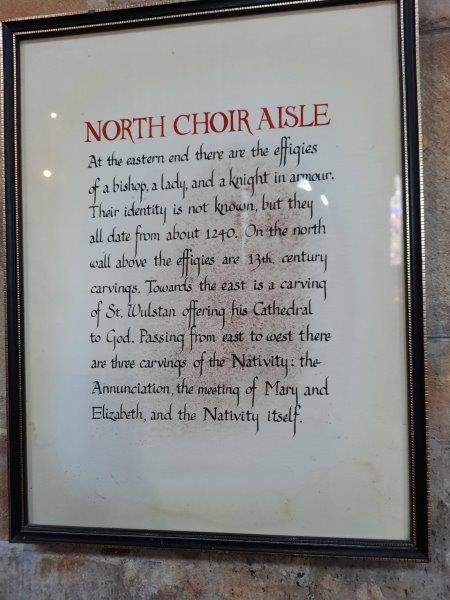 NORTH CHOIR AISLE
At the eastern end there are the effigies
of a bishop, a lady, and a knight in armour.
Their identity is not known, but they
all date from about 1240. On the north
wall above the effigies are 13th. century
carvings. Towards the east is a carving
of St. Wulstan offering his Cathedral
to God. Passing from east to west there
are three carvings of the Nativity: the
Annunciation, the meeting of Mary and
Elizabeth, and the Nativity itself.